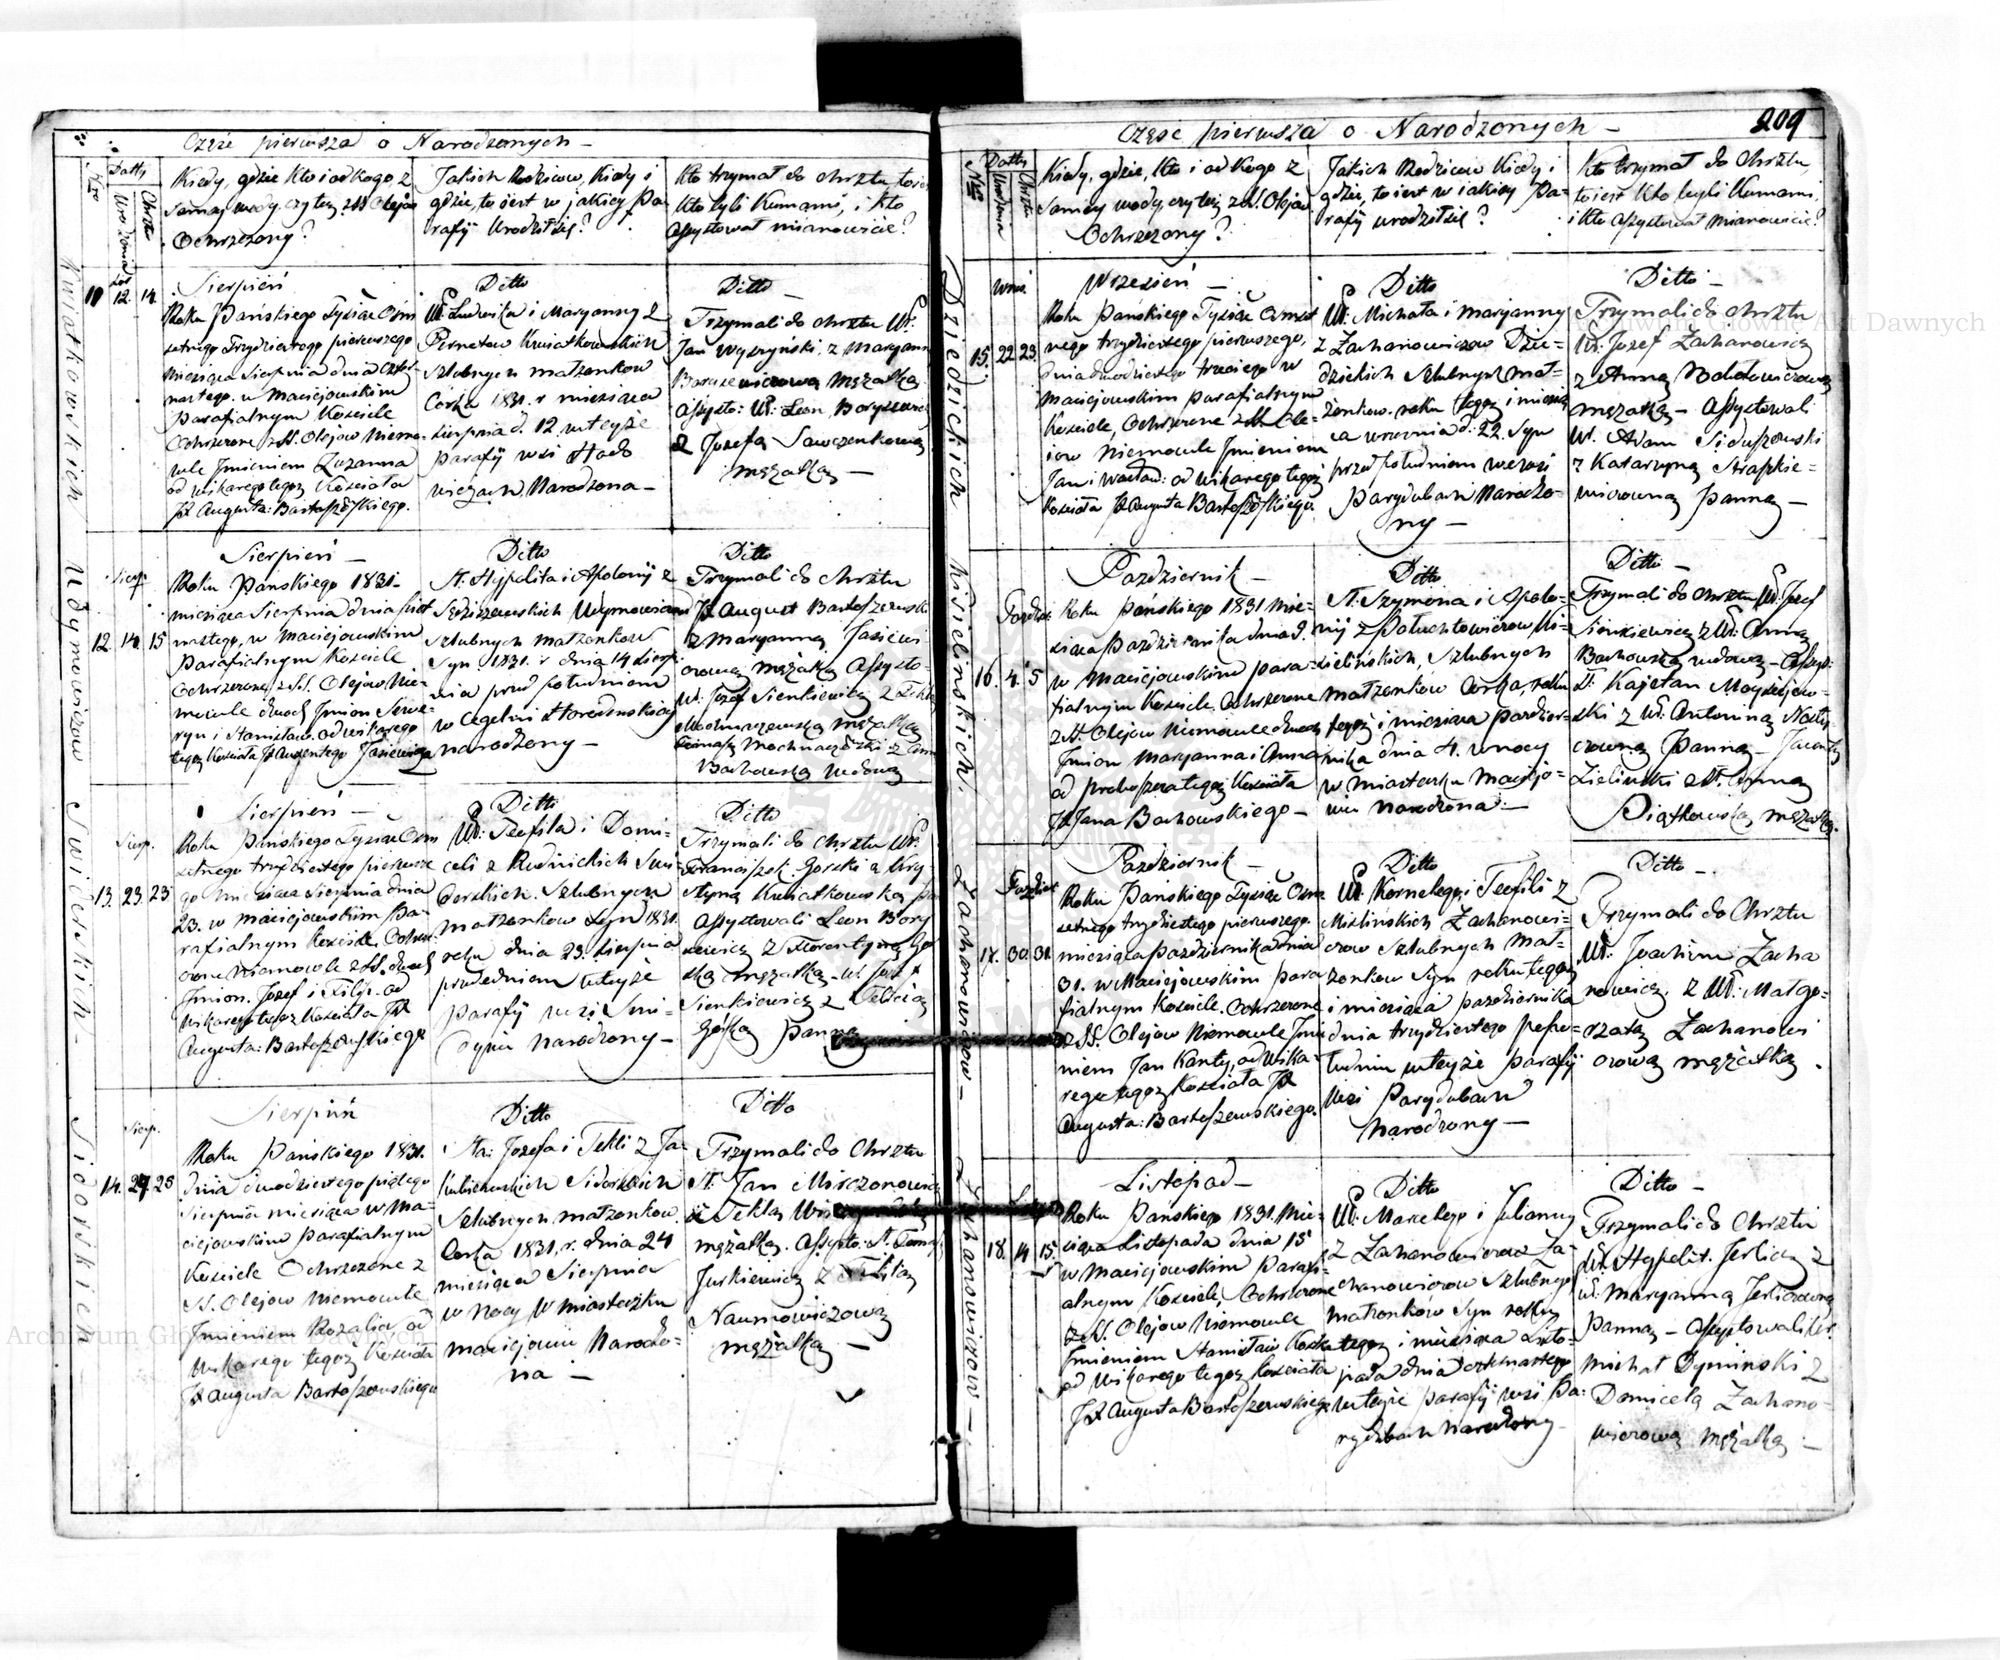 Część pierwsza o Narodzonych –
Nro
Datty
Urodzenia
Chrztu
Kiedy, gdzie Kto i od kogo, z
samej wody, czy też z SS Olejów
Ochrzczony?
Jakich Rodziców, Kiedy i
gdzie, to iest w jakiey Pa-
rafij Urodził się?
Kto trzymał do chrztu, to iest
kto byli Kumami, i kto
assystował mianowicie?
Kwiatkowskich
12. 14.
Sierpień
Roku Pańskiego Tysiąc Ośm
setnego Trzydziestego pierwszego
Miesiąca Sierpnia dnia czter-
nastego w Maciejowskim
Parafialnym Kościele
Ochrzczone z SS. Olejow Niemo-
wle Imieniem Zuzanna
od wikarego tegoż Kościoła
JX Augusta Bartoszewskiego.
Ditto
W. Ludwika i Maryanny z
Pernetow Kwiatkowskich
Szlubnych małżonkow
Corka 1831. r miesiąca
sierpnia d. 12 w teyże
parafij wsi
Narodzona –
Ditto –
Trzymali do chrztu W.
Jan Wyszyński, z Maryanną
mężatką
Assysto: W. Leon Borysiewicz
z Jozefą Sawczenkową
mężatką –
Udymowiczow
Sierp.
12. 14. 15
Sierpień –
Roku Pańskiego 1831 –
miesiąca Sierpnia dnia pięt
nastego, w Maciejowskim
Parafialnym Kościele
Ochrzczone z SS. Olejów Nie-
mowle dwoch Imion Sewe-
ryn i Stanisław od wikarego
tegoż Kościoła JX Jasiewicza
Ditto
St. Hyppolita i Apolonij z
Sędziszewskich Udymowiczow
Szlubnych małżonkow
Syn 1831. r dnia 14 Sierp-
nia przed południem
w Cegelni
narodzony –
Ditto
Trzymali do Chrztu
JX August Bartoszewski
z Maryanną Jasiewi
czową mężatką Assysto-
W. Jozef Sienkiewicz z Teklą
mężatką
z Anną
Bachowską wdową
Swiderskich –
Sierp.
13. 23. 23
Sierpień –
Roku Pańskiego Tysiąc Ośm
setnego trzydziestego pierwsze
go miesiąca Sierpnia dnia
23. w Maciejowskim Pa-
rafialnym Kościele Ochrz-
czone Niemowle z SS. dwoch
Imion. Jozef i Filip. od
Wikarego tegoż Kościoła JX
Augusta: Bartoszewskiego
Ditto
W: Teofila i Domi-
celi z Rudnickich Swi-
derskich. Szlubnych
małżonkow Syn 1831.
roku dnia 23. Sierpnia
przededniem w teyże
Parafij wsi
narodzony –
Ditto
Trzymali do chrztu W.
Franciszek Gorski z Kry-
styną Kwiatkowską
Assystowali Leon Bory
siewicz z Florentyną Gor
ską mężatką – W. Jozef
Sienkiewicz z Felicią
Gorską Panną
Sidorskich
Sierp.
14. 24. 25
Sierpień
Roku Pańskiego 1831.
Dnia dwudziestego piątego
Sierpnia miesiąca w Ma-
ciejowskim Parafialnym
Kościele Ochrzczone z
SS. Olejow Niemowle
Imieniem Rozalia od
Wikarego tegoż Kościoła
JX Augusta Bartoszewskiego
Ditto
Sta: Jozefa i Tekli z
Sidorskich
Szlubnych małżonkow.
Corka 1831. r. dnia 24
miesiąca Sierpnia
w nocy w miasteczku
Maciejowie Narodzo-
na –
Ditto
Trzymali do Chrztu
St. Jan
z Teklą
mężatką. Assysto: St. Tomasz
Jurkiewicz z
Naumowiczową
mężatką –
209
Część pierwsza o Narodzonych –
Nro
Datty
Urodzenia
Chrztu
Kiedy, gdzie, kto i od kogo z
samey wody, czy też z S. Olejów
Ochrzczony?
Jakich Rodzicow Kiedy i
gdzie, to iest w iakiey Pa-
rafij urodził się?
Kto trzymał do chrztu,
to iest kto byli Kumami,
i kto Assystował mianowicie?
Dziedzickich
Wrześ.
15. 22 23.
Wrzesień –
Roku Pańskiego Tysiąc Ośmset
nego trzydziestego pierwszego,
dnia dwudziestego trzeciego w
Maciejowskim parafialnym
Kościele, Ochrzczone z SS. Ole-
iow Niemowle Imieniem
Jan i Wacław: od wikarego tegoż
Kościoła JX Augusta Bartoszewskiego.
Ditto
W: Michała i Maryanny
z Zachanowiczow Dzie-
dzickich Szlubnych mał-
żonkow. roku tegoż i miesią
ca września d. 22. Syn
przed południem we wsi
Parydubach Narodzo-
ny –
Ditto –
Trzymali do chrztu
W. Jozef Zachanowicz
z Anną
mężatką – Assystowali
W. Adam
z Katarzyną
Panną –
Kisielinskich.
Paźdz.
16. 4. 5
Pazdziernik –
Roku Pańskiego 1831 Mie-
siąca Pazdziernika dnia 5.
w Maciejowskim para-
fialnym Kościele. Ochrzczone
z SS. Olejow Niemowle dwoch
Imion Maryanna i Anna
od proboszcza tegoż Kościoła
JX Jana Bachowskiego –
Ditto
St. Szymona i Apolo-
nij z Ki-
sielińskich, Szlubnych
małżonków Corka, roku
tegoż i miesiąca Pazdzier-
nika dnia 4. w nocy
w miasteczku Maciejo-
wie narodzona. –
Ditto –
Trzymali do chrztu W. Jozef
Sienkiewicz z W. Anną
Bachowską wdową –
St: Kajetan
ski z W. Antoniną
Panną –
Zielinski z St. Anną
Piątkowską mężatką.
Zachanowiczow –
Paździer
17. 30. 31.
Pazdziernik –
Roku Pańskiego Tysiąc Ośm
setnego trzydziestego pierwszego.
miesiąca Pazdziernika dnia
31. w Maciejowskim para
fialnym Kościele. Ochrzczone
z SS. Olejow Niemowle Imie
niem Jan Kanty, od Wika-
rego tegoż Kościoła JX
Augusta: Bartoszewskiego.
Ditto
W. Kornelego i Teofili z
Zachanowi-
czow Szlubnych Mał-
żonkow Syn roku tegoż
i miesiąca pazdziernika
dnia trzydziestego po połu-
dniu w teyże Parafij
Wsi Parydubach
Narodzony –
Ditto –
Trzymali do Chrztu
W: Joachim Zacha
nowicz, z W: Małgo-
rzatą Zachanowi
czową mężatką.
z Zachanowiczow –
18. 14 15
Listopad –
Roku Pańskiego 1831. Mie-
siąca Listopada dnia 15
w Maciejowskim Parafi-
alnym Kościele, Ochrzczone
z SS. Olejow Niemowle
Imieniem Stanisław Kostka
od Wikarego tegoż Kościoła
JX Augusta Bartoszewskiego
Ditto
W: Marcelego i Julianny
z Zachanowiczow Za-
chanowiczow Szlubnych
małżonkow Syn roku
tegoż i miesiąca Listo-
pada dnia czternastego
w teyże parafij wsi Pa-
rydubach narodzony –
Ditto –
Trzymali do Chrztu
W. Hyppolit. Jerlicz z
W. Maryanną Jerliczowną
Panną – Assystowali W.
Michał Dyminski z
Domicelą Zachano-
wiczową Mężatką –
Archiwum Główne Akt Dawnych
Archiwum Główne Akt Dawnych